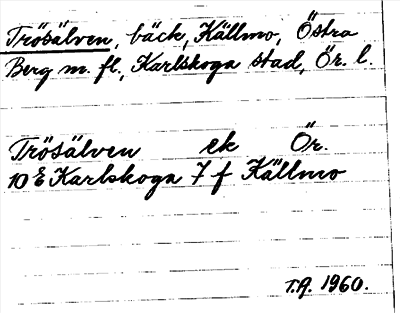 Trösälven, bäck, Källmo, Östra
Berg m. fl., Karlskoga stad, Ör. l.
Trösälven ek Ör.
10 E Karlskoga 7 f Källmo
T.A. 1960.